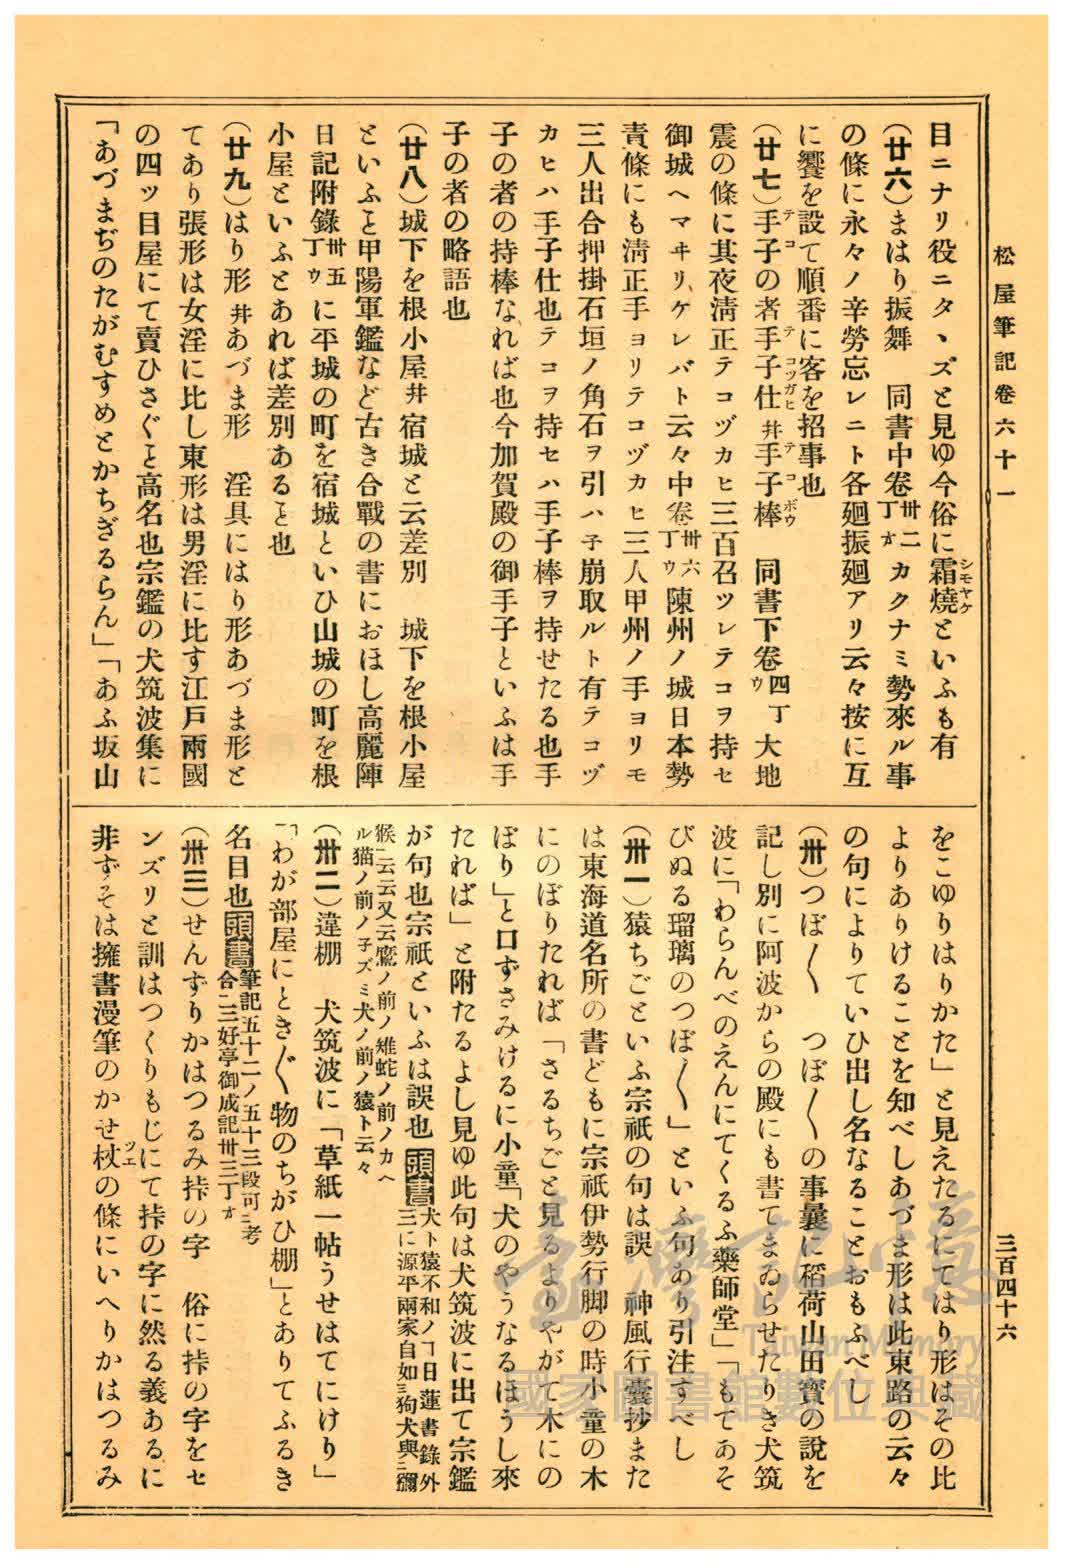 松屋筆記卷六十一
三百四十六
目ニナリ役ニタヽズと見ゆ今俗に霜燒といふも有
シモヤケ
(廿六)まはり振舞 同書中卷卅二丁オカクナミ勢來ル事
の條に永々ノ辛勞忘レニト各廻振廻アリ云々按に互
に饗を設て順番に客を招事也
(廿七)手子の者手子仕幷手子棒 同書下卷四丁ウ大地
テコ テコツガヒ テコボウ
震の條に其夜淸正テコヅカヒ三百召ツレテコヲ持セ
御城ヘマヰリケレバト云々中卷卅六丁ウ陳州ノ城日本勢
責條にも淸正手ヨリテコヅカヒ三人甲州ノ手ヨリモ
三人出合押掛石垣ノ角石ヲ引ハネ崩取ルト有テコヅ
カヒハ手子仕也テコヲ持セハ手子棒ヲ持せたる也手
子の者の持棒なれば也今加賀殿の御手子といふは手
子の者の略語也
(廿八)城下を根小屋幷宿城と云差別 城下を根小屋
といふと甲陽軍鑑など古き合戰の書におほし高麗陣
日記附錄卅五丁ウに平城の町を宿城といひ山城の町を根
小屋といふとあれば差別あると也
(廿九)はり形幷あづま形 淫具にはり形あづま形と
てあり張形は女淫に比し東形は男淫に比す江戸兩國
の四ツ目屋にて賣ひさぐと高名也宗鑑の犬筑波集に
「あづまぢのたがむすめとかちぎるらん」「あふ坂山
をこゆりはりかた」と見えたるにてはり形はその比
よりありけることを知べしあづま形は此東路の云々
の句によりていひ出し名なることおもふべし
(卅)つぼ〱 つぼ〱の事曩に稻荷山田寶の說を
記し別に阿波からの殿にも書てまゐらせたりき犬筑
波に「わらんべのえんにてくるふ藥師堂」「もてあそ
びぬる瑠璃のつぼ〱」といふ句あり引注すべし
(卅一)猿ちごといふ宗祇の句は誤 神風行囊抄また
は東海道名所の書どもに宗祇伊勢行脚の時小童の木
にのぼりたれば「さるちごと見るよりやがて木にの
ぼり」と口ずさみけるに小童「犬のやうなるほうし來
たれば」と附たるよし見ゆ此句は犬筑波に出て宗鑑
が句也宗祇といふは誤也頭書犬ト猿不和ノヿ日蓮書錄外
三に源平兩家自如三狗犬與二獼
猴一云云又云鷲ノ前ノ雉蛇ノ前ノカヘ
ル猫ノ前ノ子ズミ犬ノ前ノ猿ト云々
(卅二)違棚 犬筑波に「草紙一帖うせはてにけり」
「わが部屋にとき〲物のちがひ棚」とありてふるき
名目也頭書筆記五十二ノ五十三段可ニ考
合ニ三好亭御成記卅三丁オ
(卅三)せんずりかはつるみ㧊の字 俗に㧊の字をセ
ンズリと訓はつくりもじにて㧊の字に然る義あるに
非ずそは擁書漫筆のかせ杖の條にいへりかはつるみ
ツエ
臺灣記憶
Taiwan Memory
國家圖書館數位典藏